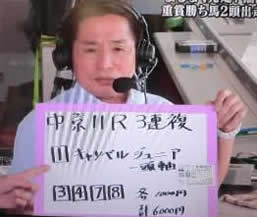 重賞勝ち馬2頭出
中京11R 3連複
1 キャリベルジュニア
一頭軸
3 4 7 8 各1000円
計6000円